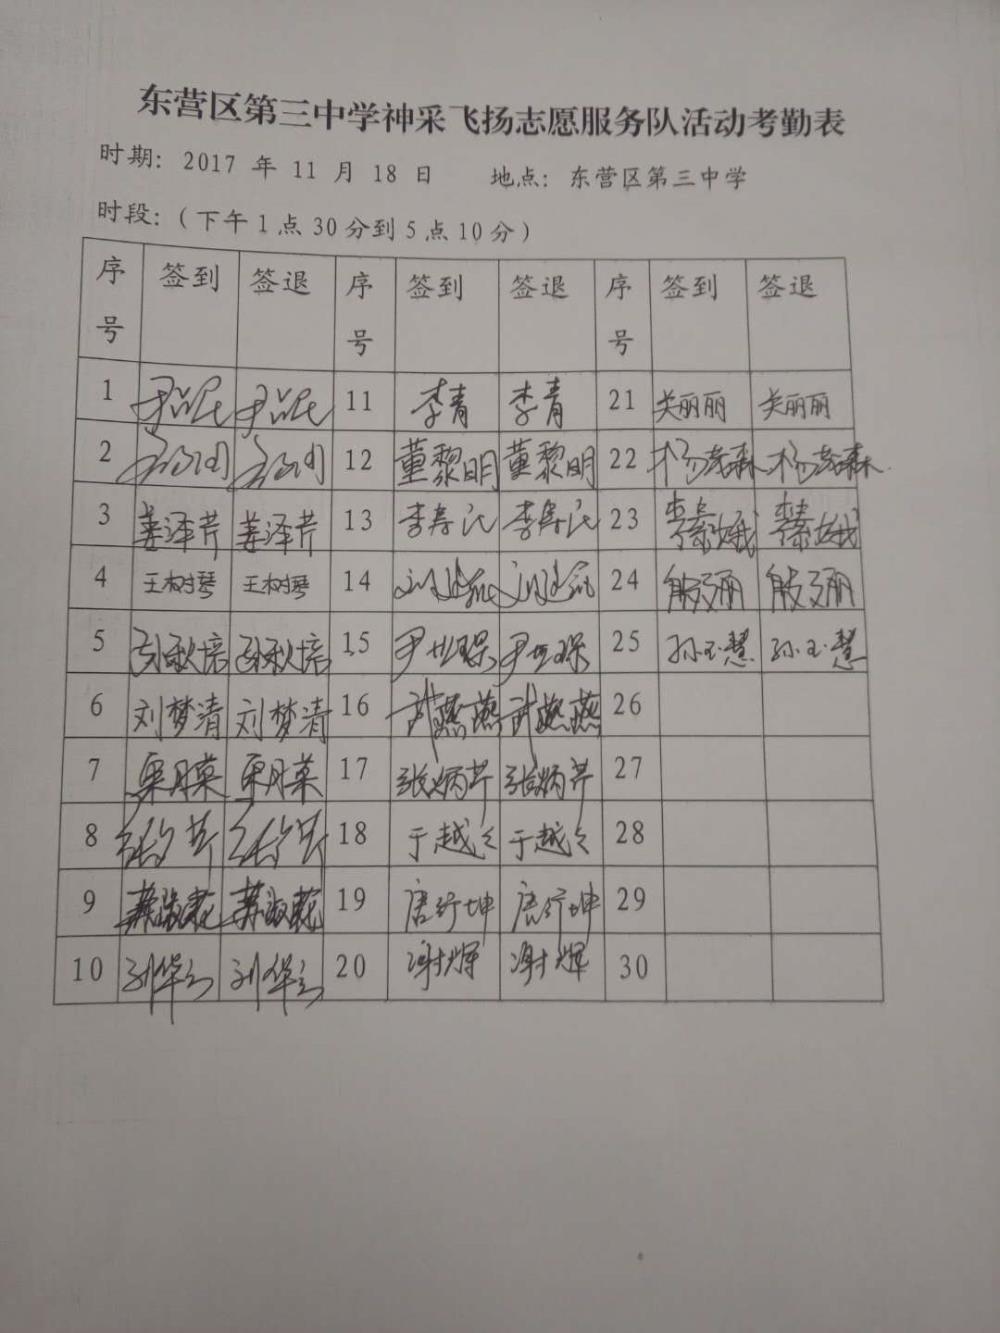 东营区第三中学神采飞扬志愿服务队活动考勤表
时期: 2017 年 11 月 18 日 地点: 东营区第三中学
时段:(下午1点30分到5点10分)
序号 签到 签退 序号 签到 签退 序号 签到 签退
1 11 李青 李青 21 关丽丽 关丽丽
2 12 董黎明 董黎明 22
3 姜泽芹 姜泽芹 13 李寿 李寿 23
4 王树琴 王树琴 14 24 殷文丽 殷文丽
5 秋培 秋培 15 尹世琛 尹世琛 25 孙玉慧 孙玉慧
6 刘梦清 刘梦清 16 燕燕 燕燕 26
7 栗月英 栗月英 17 张炳芹 张炳芹 27
8 18 于越 于越 28
9 苏淑花 苏淑花 19 唐行坤 唐行坤 29
10 刘华 刘华 20 谢辉 谢辉 30